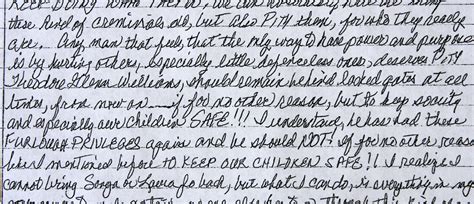 these kind of creminals do, but also PITY them, for who they really
are. Any man that feels that the only way to have power and purpose
is by hurting others, especially little defenceless ones, deserves PITY
Theodore Glenn Williams, should remain behind locked gates at all
times, from now on — if for no other reason, but to keep society
and especially our children SAFE!!! I understand, he has had these
FURLOUGH PRIVILEGES again and he should NOT! if for no other reason
where I mentioned before to KEEP OUR CHILDREN SAFE!! I realize I
cannot bring Sonya or Laura Jo back, but what I can do, is everything in my